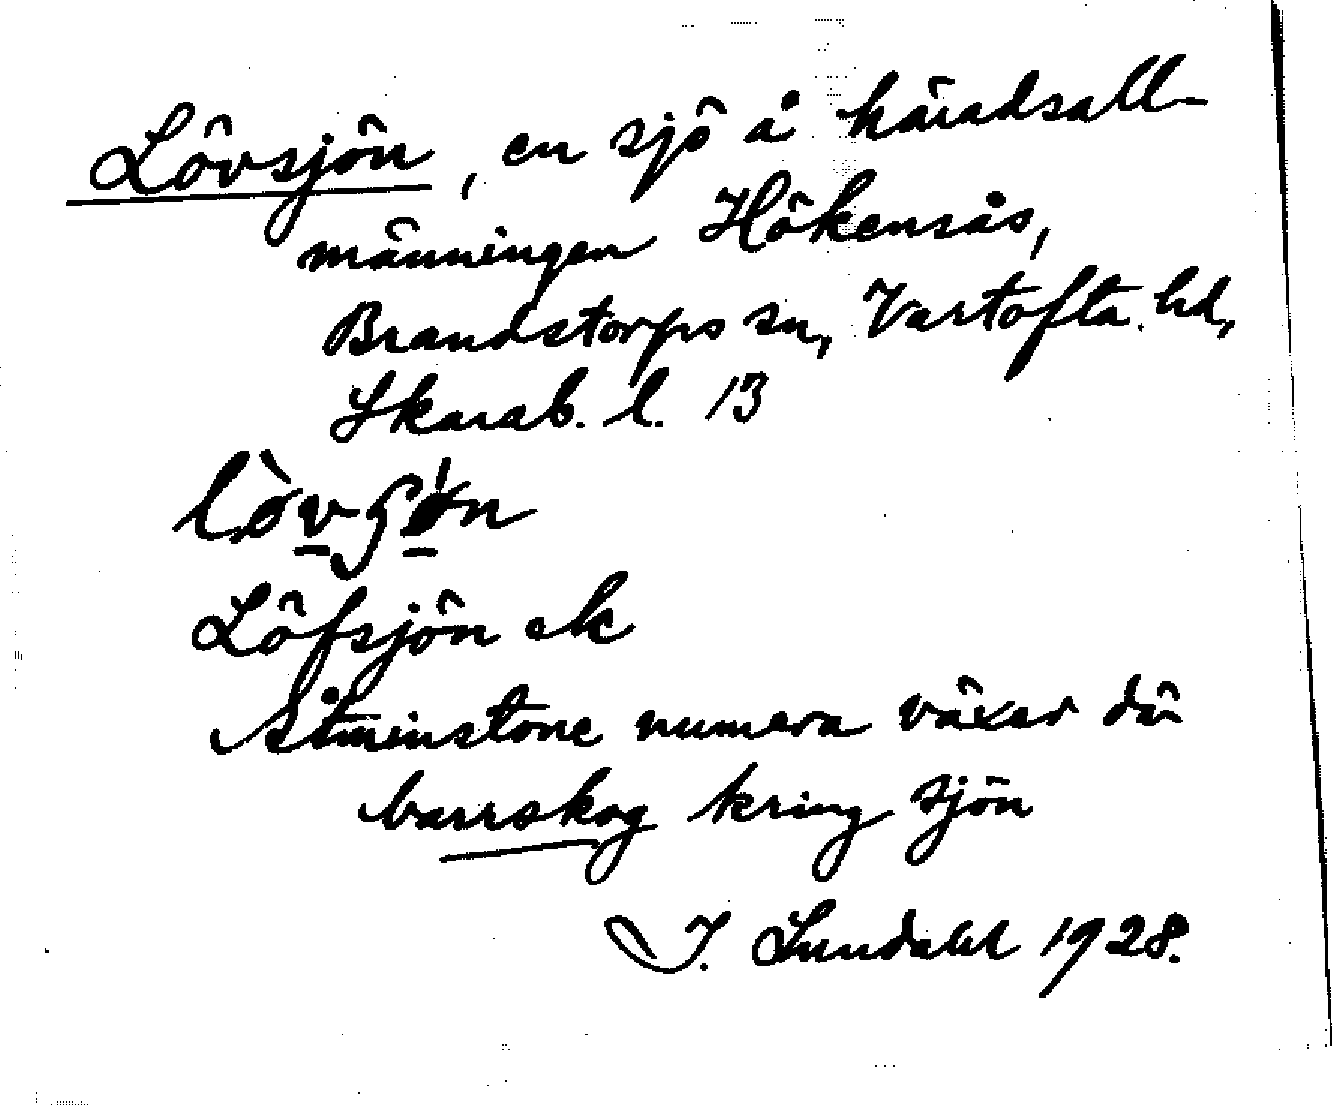 Lövsjön, en sjö å häradsall-
männingen Hökensås,
Brandstorps sn, Vartofta hd,
Skarab. l. 13
Löfsjön ek
Åtminstone numera växer där
barrskog kring sjön
I. Lundahl 1928.